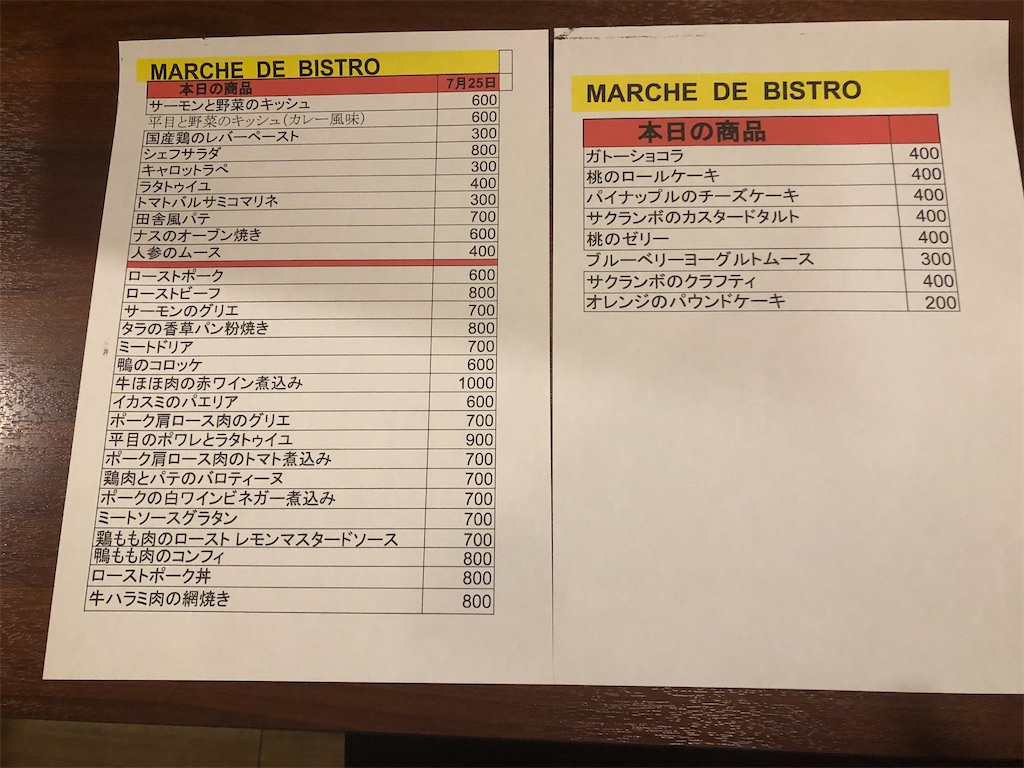 MARCHE DE BISTRO
本日の商品 7月25日
サーモンと野菜のキッシュ 600
平目と野菜のキッシュ(カレー風味) 600
国産鶏のレバーペースト 300
シェフサラダ 800
キャロットラペ 300
ラタトゥイユ 400
トマトバルサミコマリネ 300
田舎風パテ 700
ナスのオーブン焼き 600
人参のムース 400
ローストポーク 600
ローストビーフ 800
サーモンのグリエ 700
タラの香草パン粉焼き 800
ミートドリア 700
鴨のコロッケ 600
牛ほほ肉の赤ワイン煮込み 1000
イカスミのパエリア 600
ポーク肩ロース肉のグリエ 700
平目のポワレとラタトゥイユ 900
ポーク肩ロース肉のトマト煮込み 700
鶏肉とパテのバロティーヌ 700
ポークの白ワインビネガー煮込み 700
ミートソースグラタン 700
鶏もも肉のロースト レモンマスタードソース 700
鴨もも肉のコンフィ 800
ローストポーク丼 800
牛ハラミ肉の網焼き 800
MARCHE DE BISTRO
本日の商品
ガトーショコラ 400
桃のロールケーキ 400
パイナップルのチーズケーキ 400
サクランボのカスタードタルト 400
桃のゼリー 400
ブルーベリーヨーグルトムース 300
サクランボのクラフティ 400
オレンジのパウンドケーキ 200